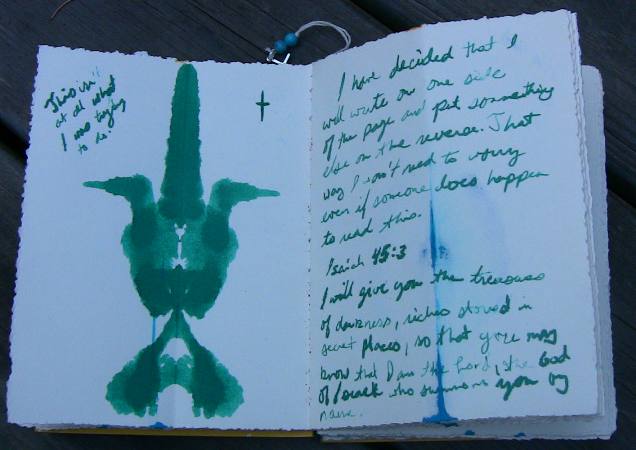 This isn't
at all what
I was trying
to do.
I have decided that I
will write on one side
of the page and put something
else on the reverse. That
way I won't need to worry
even if someone does happen
to read this.
Isaiah 45:3
I will give you the treasures
of darkness, riches stored in
secret places, so that you may
know that I am the Lord, the God
of Israel who summons you by
name.